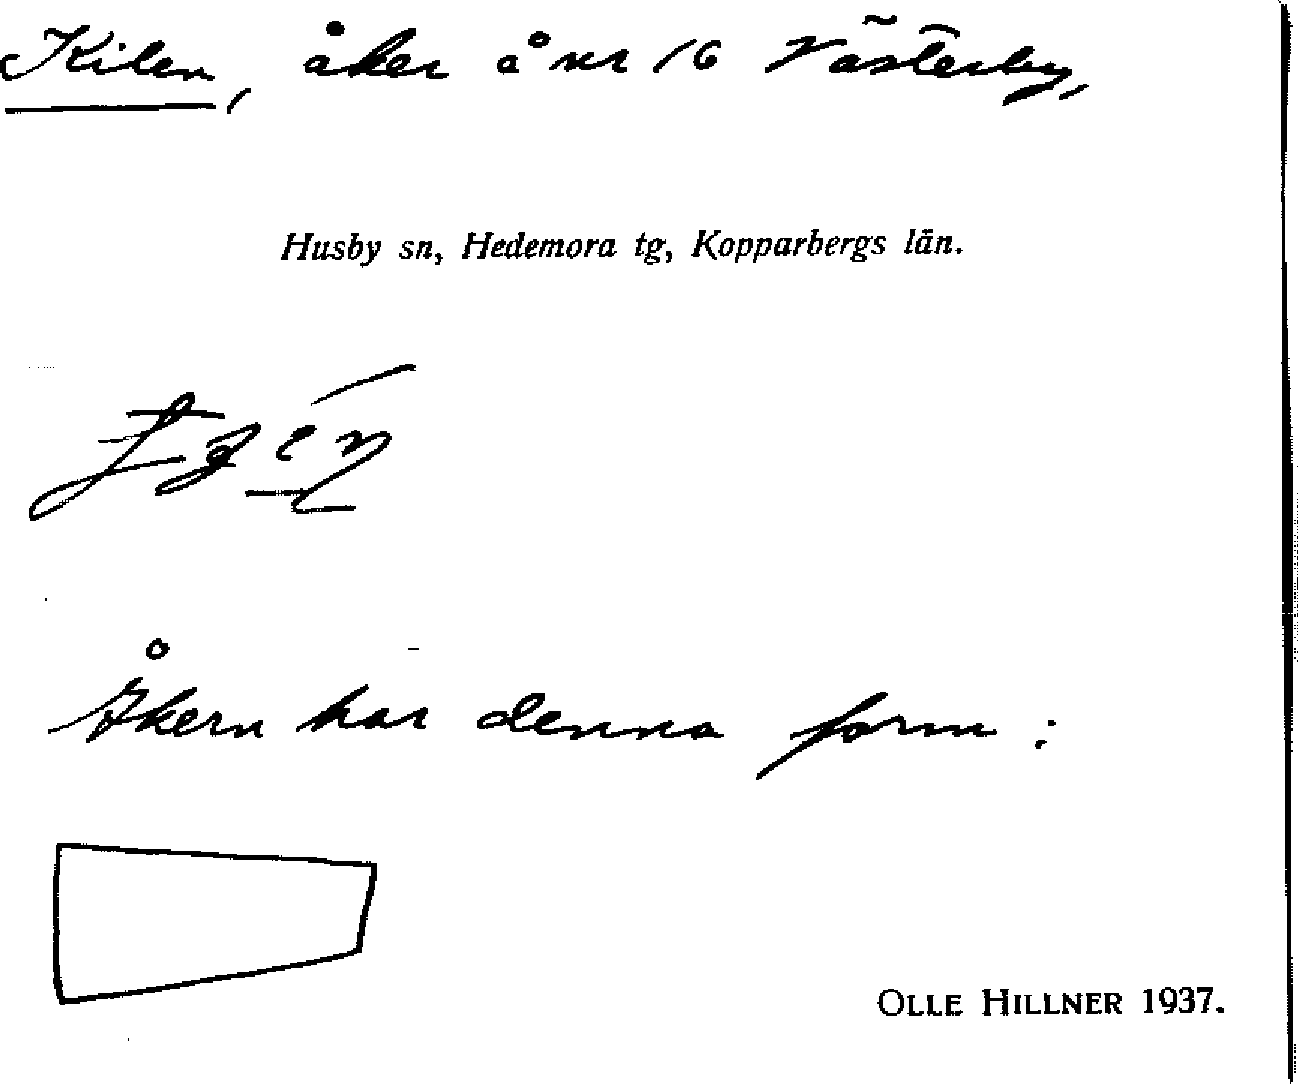 Kilen, åker å nr 16 Västerby,
Husby sn, Hedemora tg, Kopparbergs län.
Åkern har denna form :
OLLE HILLNER 1937.